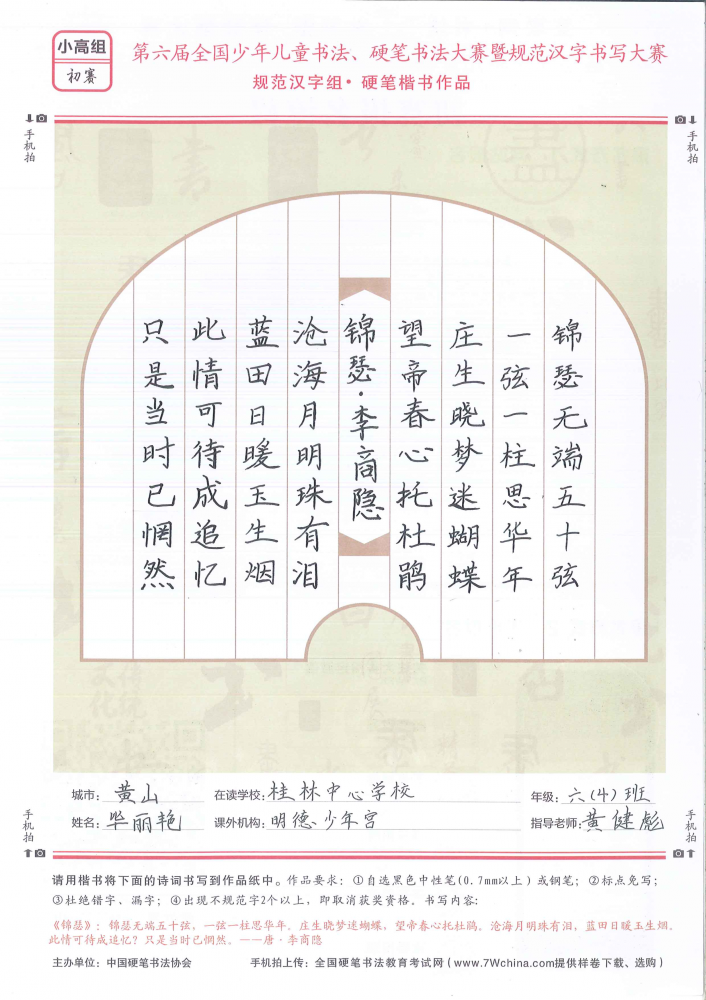 小高组
初赛
第六届全国少年儿童书法、硬笔书法大赛暨规范汉字书写大赛
规范汉字组·硬笔楷书作品
手机拍
手机拍
锦瑟无端五十弦
一弦一柱思华年
庄生晓梦迷蝴蝶
望帝春心托杜鹃
锦瑟·李商隐
沧海月明珠有泪
蓝田日暖玉生烟
此情可待成追忆
只是当时已惘然
城市：黄山
在读学校：桂林中心学校
年级：六(4)班
姓名：毕丽艳
课外机构：明德少年宫
指导老师：黄健彪
手机拍
手机拍
请用楷书将下面的诗词书写到作品纸中。作品要求：①自选黑色中性笔(0.7mm以上)或钢笔；②标点免写；
③杜绝错字、漏字；④出现不规范字2个以上，即取消获奖资格。书写内容：
《锦瑟》：锦瑟无端五十弦，一弦一柱思华年。庄生晓梦迷蝴蝶，望帝春心托杜鹃。沧海月明珠有泪，蓝田日暖玉生烟。
此情可待成追忆？只是当时已惘然。——唐·李商隐
主办单位：中国硬笔书法协会
手机拍上传：全国硬笔书法教育考试网（www.7Wchina.com提供样卷下载、选购）